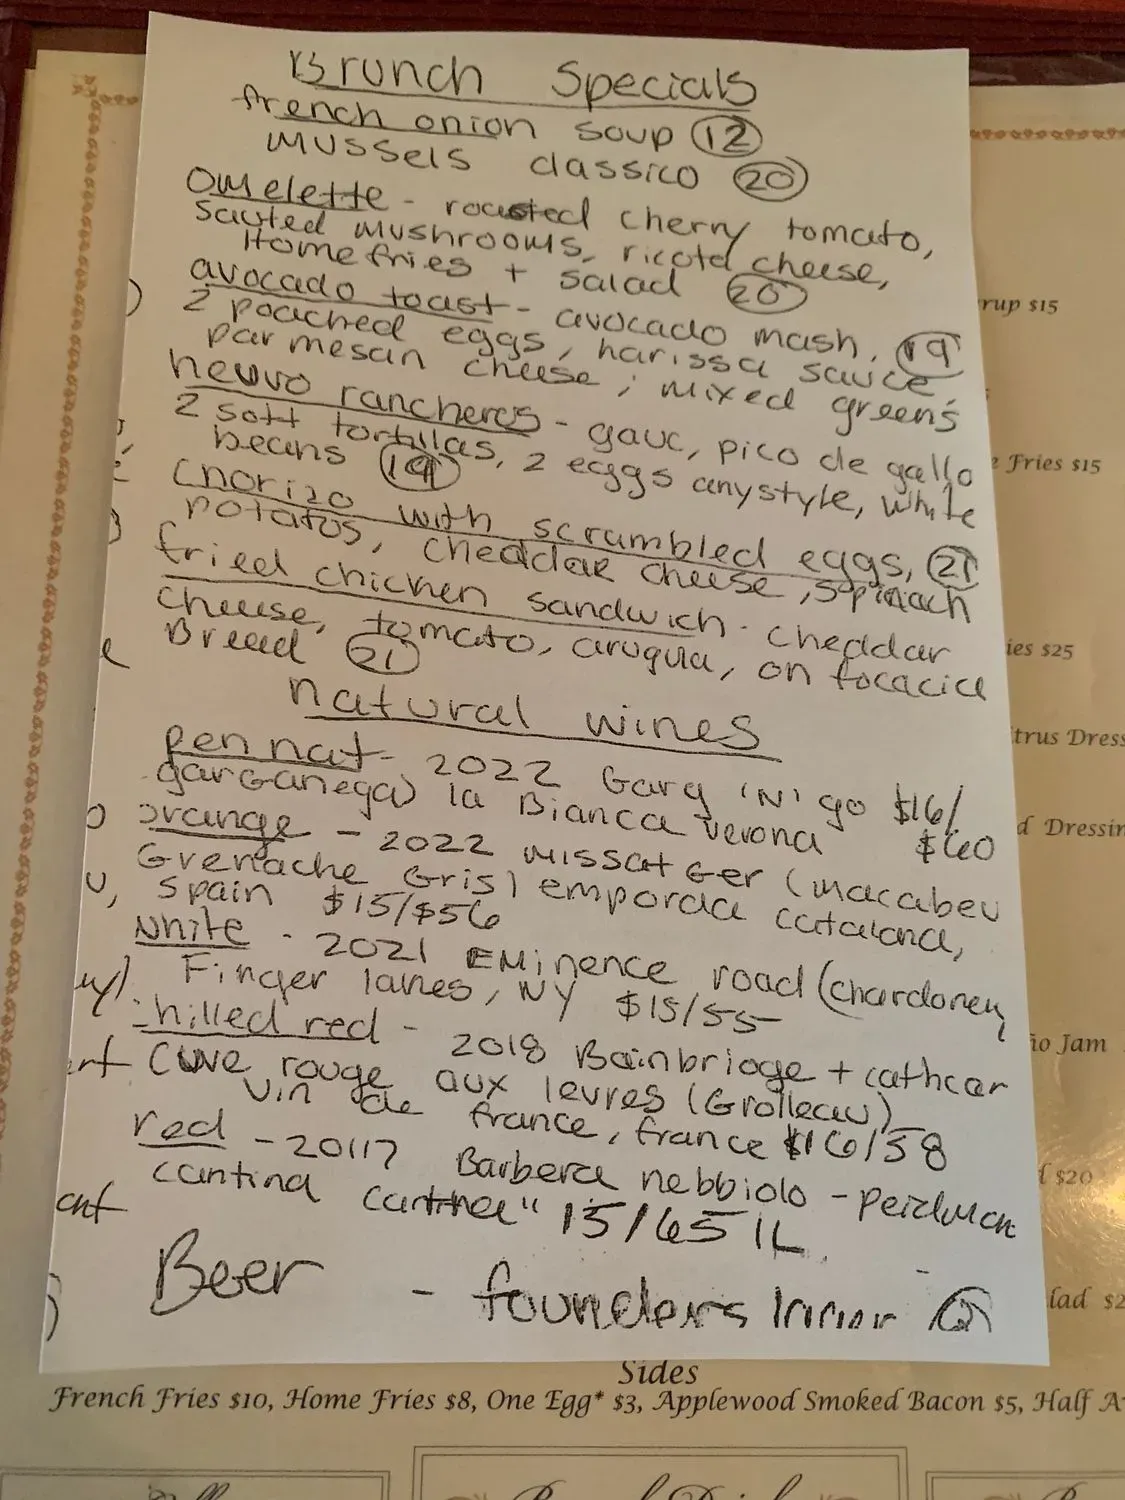 Brunch Specials
french onion soup 12
mussels classico 20
Omelette - roasted cherry tomato,
Sauted mushrooms, ricota cheese,
Home fries + salad 20
avocado toast - avocado mash, 19
2 poached eggs, harissa sauce,
parmesan cheese, mixed greens
heuvo rancheros - gauc, pico de gallo
2 soft tortillas, 2 eggs anystyle, white
beans 19
chorizo with scrambled eggs, 21
potatos, cheddar cheese, spinach
fried chicken sandwich - cheddar
cheese, tomato, arugula, on focacia
Bread 21
natural wines
pen nat - 2022 Garg 'N' go $16/
garganega) la Bianca verona $60
orange - 2022 missatger (macabeu
Grenache Gris) emporda catalana,
Spain $15/$56
White - 2021 Eminence road (chardoney
Finger lakes, NY $15/55
chilled red - 2018 Bainbridge + cathcar
Cuve rouge aux levres (Grolleau)
vin de france, france $16/58
red - 2017 Barbera nebbiolo -
cantina 15/65 1L
Beer - founders
rup $15
Fries $15
ies $25
trus Dress
d Dressin
io Jam
$20
lad $2
Sides
French Fries $10, Home Fries $8, One Egg* $3, Applewood Smoked Bacon $5, Half A